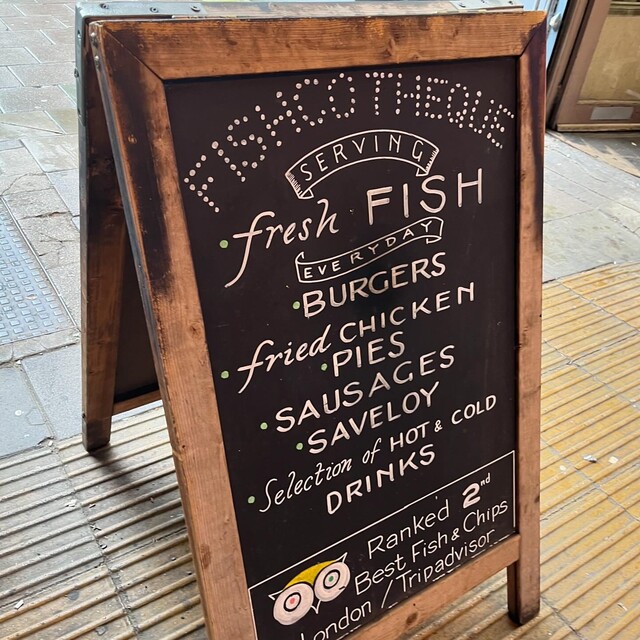 FISHCOTHEQUE
SERVING
• fresh FISH
EVERYDAY
• BURGERS
• fried CHICKEN
• PIES
• SAUSAGES
• SAVELOY
• Selection of HOT & COLD
DRINKS
Ranked 2nd
Best Fish & Chips
London / Tripadvisor